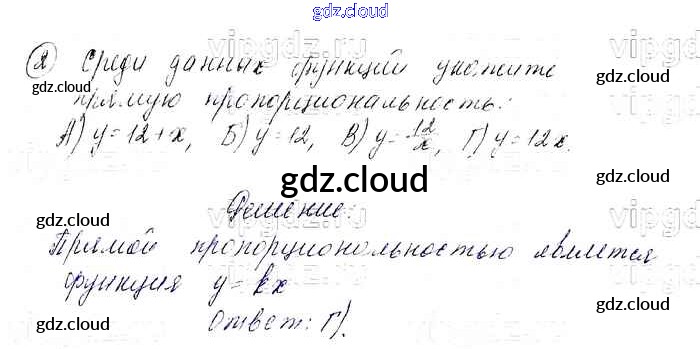 gdz.cloud
vipgdz.ru
② Среди данных функций укажите
gdz.cloud gdz.cloud
прямую пропорциональность:
А) y=12+x, Б) y=12, В) y=12/x, Г) y=12x.
gdz.cloud
gdz.cloud
Решение:
gdz.cloud gdz.cloud
Прямой пропорциональностью является
функция y=kx
Ответ: Г).
gdz.cloud gdz.cloud